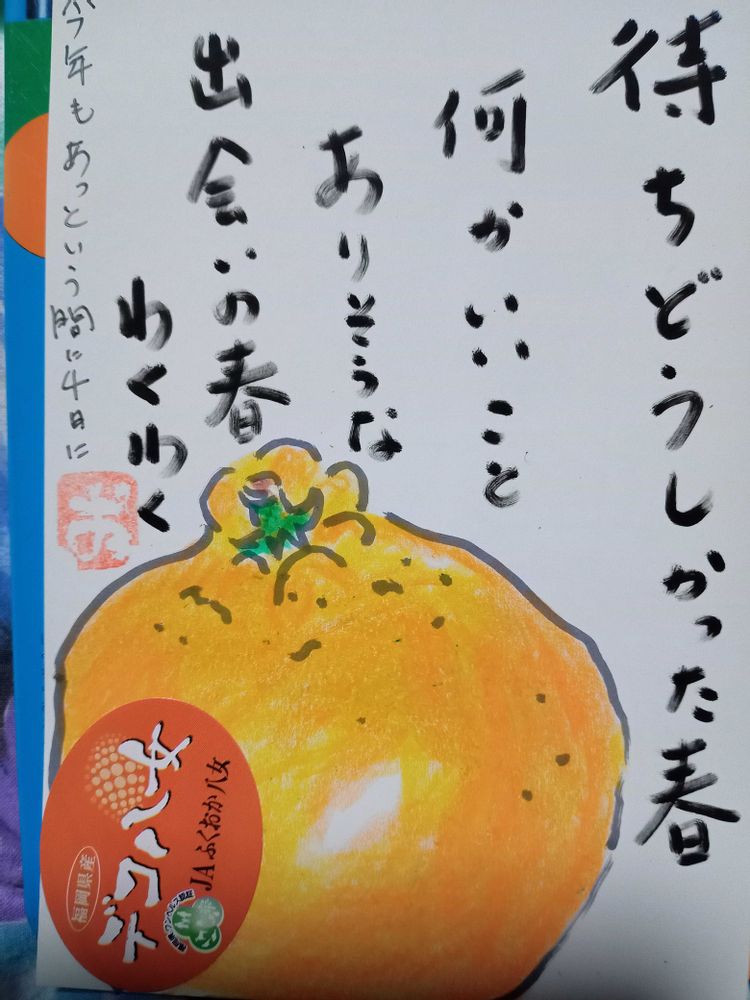 待ちどうしかった春
何かいいこと
ありそうな
出会いの春
わくわく
今年もあっという間に4日に
お
デコハ女
JAふくおか八女
福岡県産